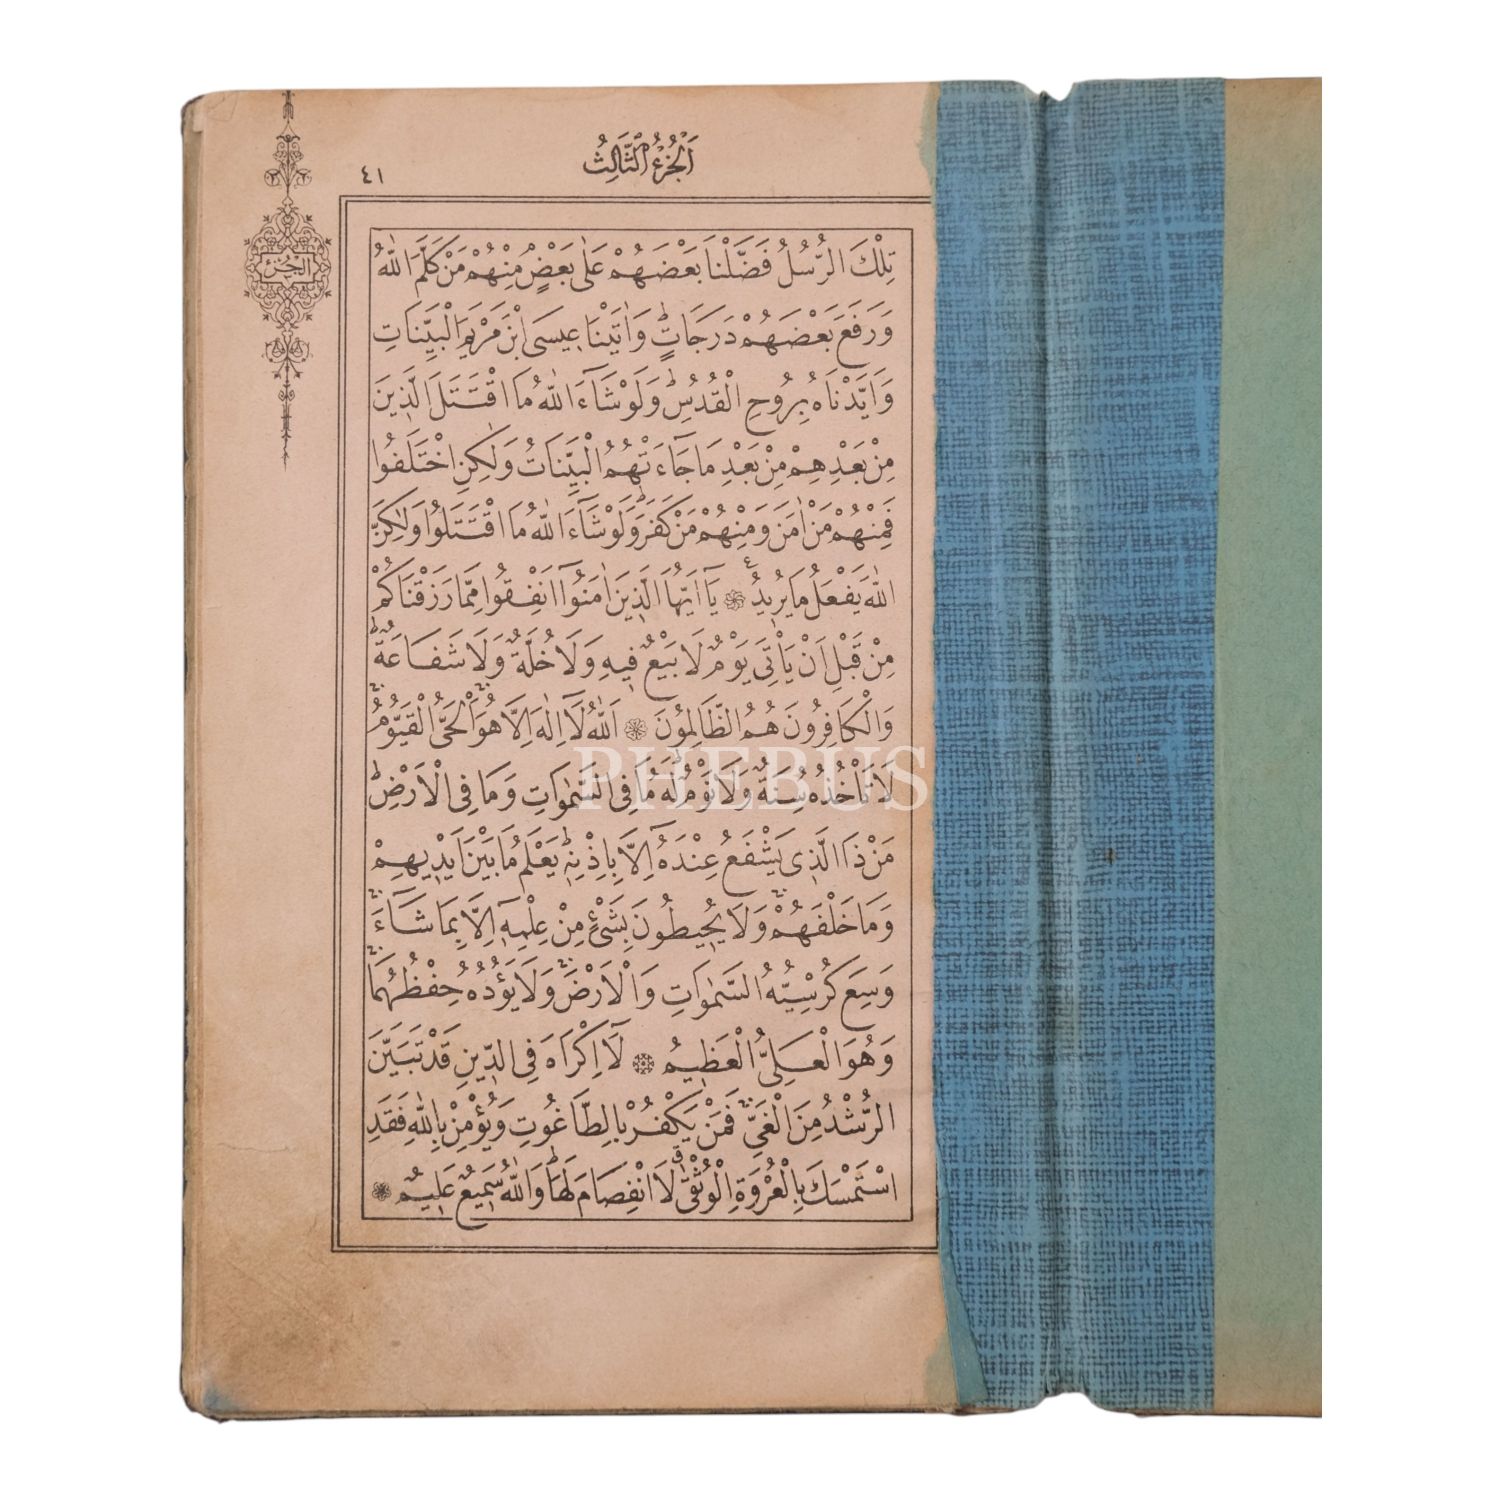 اَلْجُزْءُ الثَّالِثُ
٤١
الجزء
تِلْكَ الرُّسُلُ فَضَّلْنَا بَعْضَهُمْ عَلٰى بَعْضٍ مِنْهُمْ مَنْ كَلَّمَ اللّٰهُ
وَرَفَعَ بَعْضَهُمْ دَرَجَاتٍۜ وَاٰتَيْنَا عِيسَى ابْنَ مَرْيَمَ الْبَيِّنَاتِ
وَاَيَّدْنَاهُ بِرُوحِ الْقُدُسِۜ وَلَوْ شَٓاءَ اللّٰهُ مَا اقْتَتَلَ الَّذِينَ
مِنْ بَعْدِهِمْ مِنْ بَعْدِ مَا جَٓاءَتْهُمُ الْبَيِّنَاتُ وَلٰكِنِ اخْتَلَفُوا
فَمِنْهُمْ مَنْ اٰمَنَ وَمِنْهُمْ مَنْ كَفَرَۜ وَلَوْ شَٓاءَ اللّٰهُ مَا اقْتَتَلُوا وَلٰكِنَّ
اللّٰهَ يَفْعَلُ مَا يُرِيدُ ۝ يَٓا اَيُّهَا الَّذِينَ اٰمَنُٓوا اَنْفِقُوا مِمَّا رَزَقْنَاكُمْ
مِنْ قَبْلِ اَنْ يَأْتِيَ يَوْمٌ لَا بَيْعٌ فِيهِ وَلَا خُلَّةٌ وَلَا شَفَاعَةٌۜ
وَالْكَافِرُونَ هُمُ الظَّالِمُونَ ۝ اَللّٰهُ لَٓا اِلٰهَ اِلَّا هُوَۚ اَلْحَيُّ الْقَيُّومُۚ
لَا تَأْخُذُهُ سِنَةٌ وَلَا نَوْمٌۜ لَهُ مَا فِي السَّمٰوَاتِ وَمَا فِي الْاَرْضِۜ
مَنْ ذَا الَّذِي يَشْفَعُ عِنْدَهُٓ اِلَّا بِاِذْنِهِۜ يَعْلَمُ مَا بَيْنَ اَيْدِيهِمْ
وَمَا خَلْفَهُمْۚ وَلَا يُحِيطُونَ بِشَيْءٍ مِنْ عِلْمِهِٓ اِلَّا بِمَا شَٓاءَۚ
وَسِعَ كُرْسِيُّهُ السَّمٰوَاتِ وَالْاَرْضَۚ وَلَا يَؤُدُهُ حِفْظُهُمَاۚ
وَهُوَ الْعَلِيُّ الْعَظِيمُ ۝ لَٓا اِكْرَاهَ فِي الدِّينِ قَدْ تَبَيَّنَ
الرُّشْدُ مِنَ الْغَيِّۚ فَمَنْ يَكْفُرْ بِالطَّاغُوتِ وَيُؤْمِنْ بِاللّٰهِ فَقَدِ
اسْتَمْسَكَ بِالْعُرْوَةِ الْوُثْقٰىۗ لَا انْفِصَامَ لَهَاۜ وَاللّٰهُ سَمِيعٌ عَلِيمٌ ۝
PHEBUS